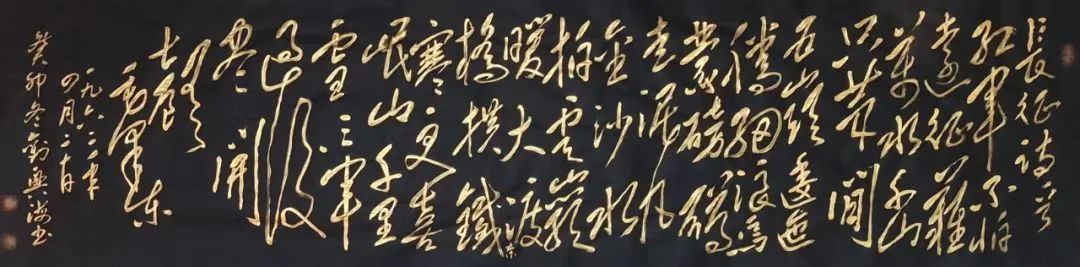 长征诗一首
红军不怕
远征难
万水千山
只等闲
五岭逶迤
腾细浪
乌蒙磅礴
走泥丸
金沙水
拍云崖
暖大渡
桥横铁
寒更喜
岷山千里
雪三军
过后
尽开
颜
毛泽东
一九六二年
四月二十日
癸卯冬刘兴海书